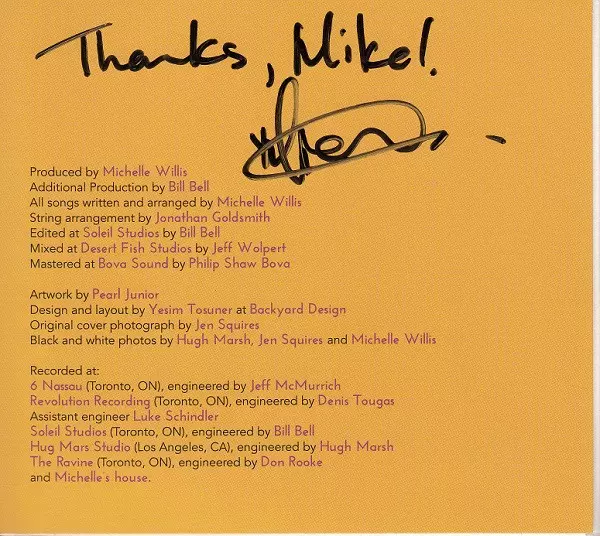 Thanks, Mike!
Produced by Michelle Willis
Additional Production by Bill Bell
All songs written and arranged by Michelle Willis
String arrangement by Jonathan Goldsmith
Edited at Soleil Studios by Bill Bell
Mixed at Desert Fish Studios by Jeff Wolpert
Mastered at Bova Sound by Philip Shaw Bova
Artwork by Pearl Junior
Design and layout by Yesim Tosuner at Backyard Design
Original cover photograph by Jen Squires
Black and white photos by Hugh Marsh, Jen Squires and Michelle Willis
Recorded at:
6 Nassau (Toronto, ON), engineered by Jeff McMurrich
Revolution Recording (Toronto, ON), engineered by Denis Tougas
Assistant engineer Luke Schindler
Soleil Studios (Toronto, ON), engineered by Bill Bell
Hug Mars Studio (Los Angeles, CA), engineered by Hugh Marsh
The Ravine (Toronto, ON), engineered by Don Rooke
and Michelle's house.